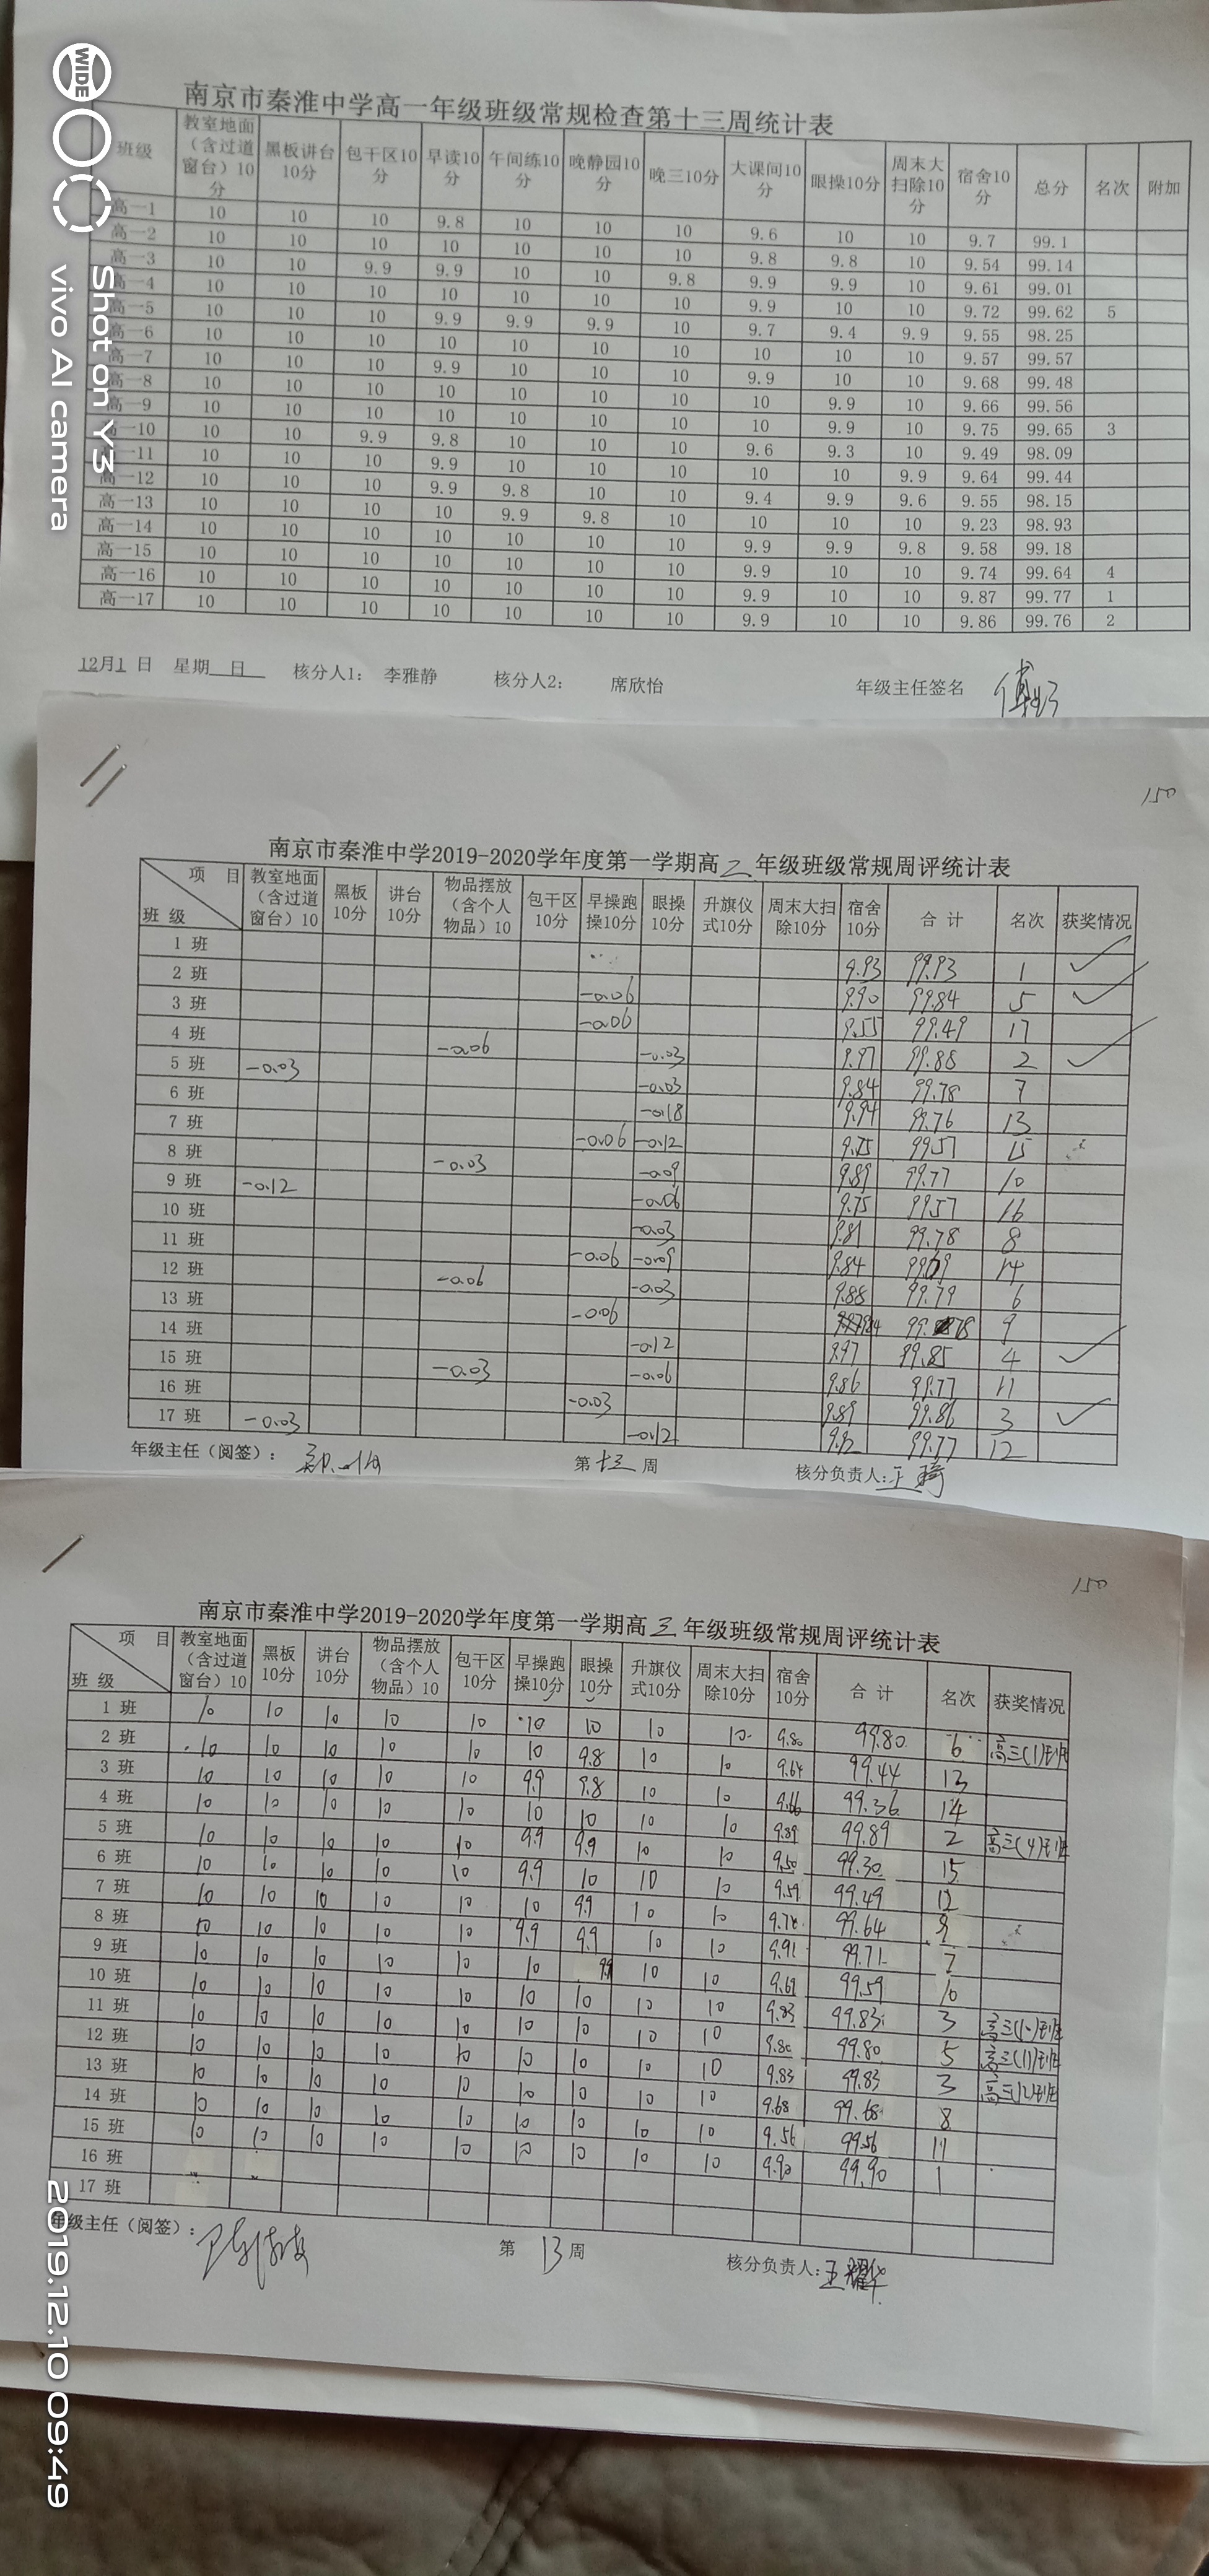 南京市秦淮中学高一年级班级常规检查第十三周统计表
班级 教室地面（含过道窗台）10分 黑板讲台10分 包干区10分 早读10分 午间练10分 晚静园10分 晚三10分 大课间10分 眼操10分 周末大扫除10分 宿舍10分 总分 名次 附加
高一1 10 10 10 9.8 10 10 10 9.6 10 10 9.7 99.1
高一2 10 10 10 10 10 10 10 9.8 9.8 10 9.54 99.14
高一3 10 10 9.9 9.9 10 10 9.8 9.9 9.9 10 9.61 99.01
高一4 10 10 10 10 10 10 10 9.9 10 10 9.72 99.62 5
高一5 10 10 10 9.9 9.9 9.9 10 9.7 9.4 9.9 9.55 98.25
高一6 10 10 10 10 10 10 10 10 10 10 9.57 99.57
高一7 10 10 10 9.9 10 10 10 9.9 10 10 9.68 99.48
高一8 10 10 10 10 10 10 10 10 9.9 10 9.66 99.56
高一9 10 10 10 10 10 10 10 10 9.9 10 9.75 99.65 3
一10 10 10 9.9 9.8 10 10 10 9.6 9.3 10 9.49 98.09
一11 10 10 10 9.9 10 10 10 10 10 9.9 9.64 99.44
高一12 10 10 10 9.9 9.8 10 10 9.4 9.9 9.6 9.55 98.15
高一13 10 10 10 10 9.9 9.8 10 10 10 10 9.23 98.93
高一14 10 10 10 10 10 10 10 9.9 9.9 9.8 9.58 99.18
高一15 10 10 10 10 10 10 10 9.9 10 10 9.74 99.64 4
高一16 10 10 10 10 10 10 10 9.9 10 10 9.87 99.77 1
高一17 10 10 10 10 10 10 10 9.9 10 10 9.86 99.76 2
12月1 日 星期 日 核分人1： 李雅静 核分人2： 席欣怡 年级主任签名
150
南京市秦淮中学2019-2020学年度第一学期高二年级班级常规周评统计表
项 目 班 级 教室地面（含过道窗台）10 黑板10分 讲台10分 物品摆放（含个人物品）10 包干区10分 早操跑操10分 眼操10分 升旗仪式10分 周末大扫除10分 宿舍10分 合 计 名次 获奖情况
1 班 9.93 99.93 1 ✓
2 班 -0.06 9.90 99.84 5 ✓
3 班 -0.06 9.55 99.49 17
4 班 -0.06 -0.03 9.97 99.88 2 ✓
5 班 -0.03 -0.03 9.84 99.78 7
6 班 -0.18 9.94 99.76 13
7 班 -0.06 -0.12 9.75 99.57 15
8 班 -0.03 -0.09 9.89 99.77 10
9 班 -0.12 -0.06 9.75 99.57 16
10 班 -0.03 9.81 99.78 8
11 班 -0.06 -0.09 9.84 99.69 14
12 班 -0.06 -0.03 9.88 99.79 6
13 班 -0.06 9.84 99.78 9
14 班 -0.12 9.97 99.85 4 ✓
15 班 -0.03 -0.06 9.86 99.77 11
16 班 -0.03 9.89 99.86 3 ✓
17 班 -0.03 -0.12 9.92 99.77 12
年级主任（阅签）： 第 十三 周 核分负责人：王琦
150
南京市秦淮中学2019-2020学年度第一学期高三年级班级常规周评统计表
项 目 班 级 教室地面（含过道窗台）10 黑板10分 讲台10分 物品摆放（含个人物品）10 包干区10分 早操跑操10分 眼操10分 升旗仪式10分 周末大扫除10分 宿舍10分 合 计 名次 获奖情况
1 班 10 10 10 10 10 10 10 10 10 9.80 99.80 6 高三(1)班
2 班 10 10 10 10 10 10 9.8 10 10 9.64 99.44 13
3 班 10 10 10 10 10 9.9 9.8 10 10 9.66 99.36 14
4 班 10 10 10 10 10 10 10 10 10 9.89 99.89 2 高三(4)班
5 班 10 10 10 10 10 9.9 9.9 10 10 9.50 99.30 15
6 班 10 10 10 10 10 9.9 10 10 10 9.59 99.49 12
7 班 10 10 10 10 10 10 9.9 10 10 9.74 99.64 9
8 班 10 10 10 10 10 9.9 9.9 10 10 9.91 99.71 7
9 班 10 10 10 10 10 10 9.9 10 10 9.69 99.59 10
10 班 10 10 10 10 10 10 10 10 10 9.83 99.83 3 高三(10)班
11 班 10 10 10 10 10 10 10 10 10 9.80 99.80 5 高三(11)班
12 班 10 10 10 10 10 10 10 10 10 9.83 99.83 3 高三(12)班
13 班 10 10 10 10 10 10 10 10 10 9.68 99.68 8
14 班 10 10 10 10 10 10 10 10 10 9.56 99.56 11
15 班 10 10 10 10 10 10 10 10 10 9.90 99.90 1
16 班
17 班
年级主任（阅签）： 第 13 周 核分负责人：王耀华
WIDE
Shot on Y3
vivo AI camera
2019.12.10 09:49